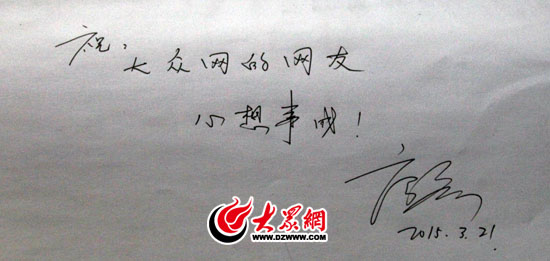 祝:大众网的网友
心想事成!
2015.3.21
大眾網
WWW.DZWWW.COM